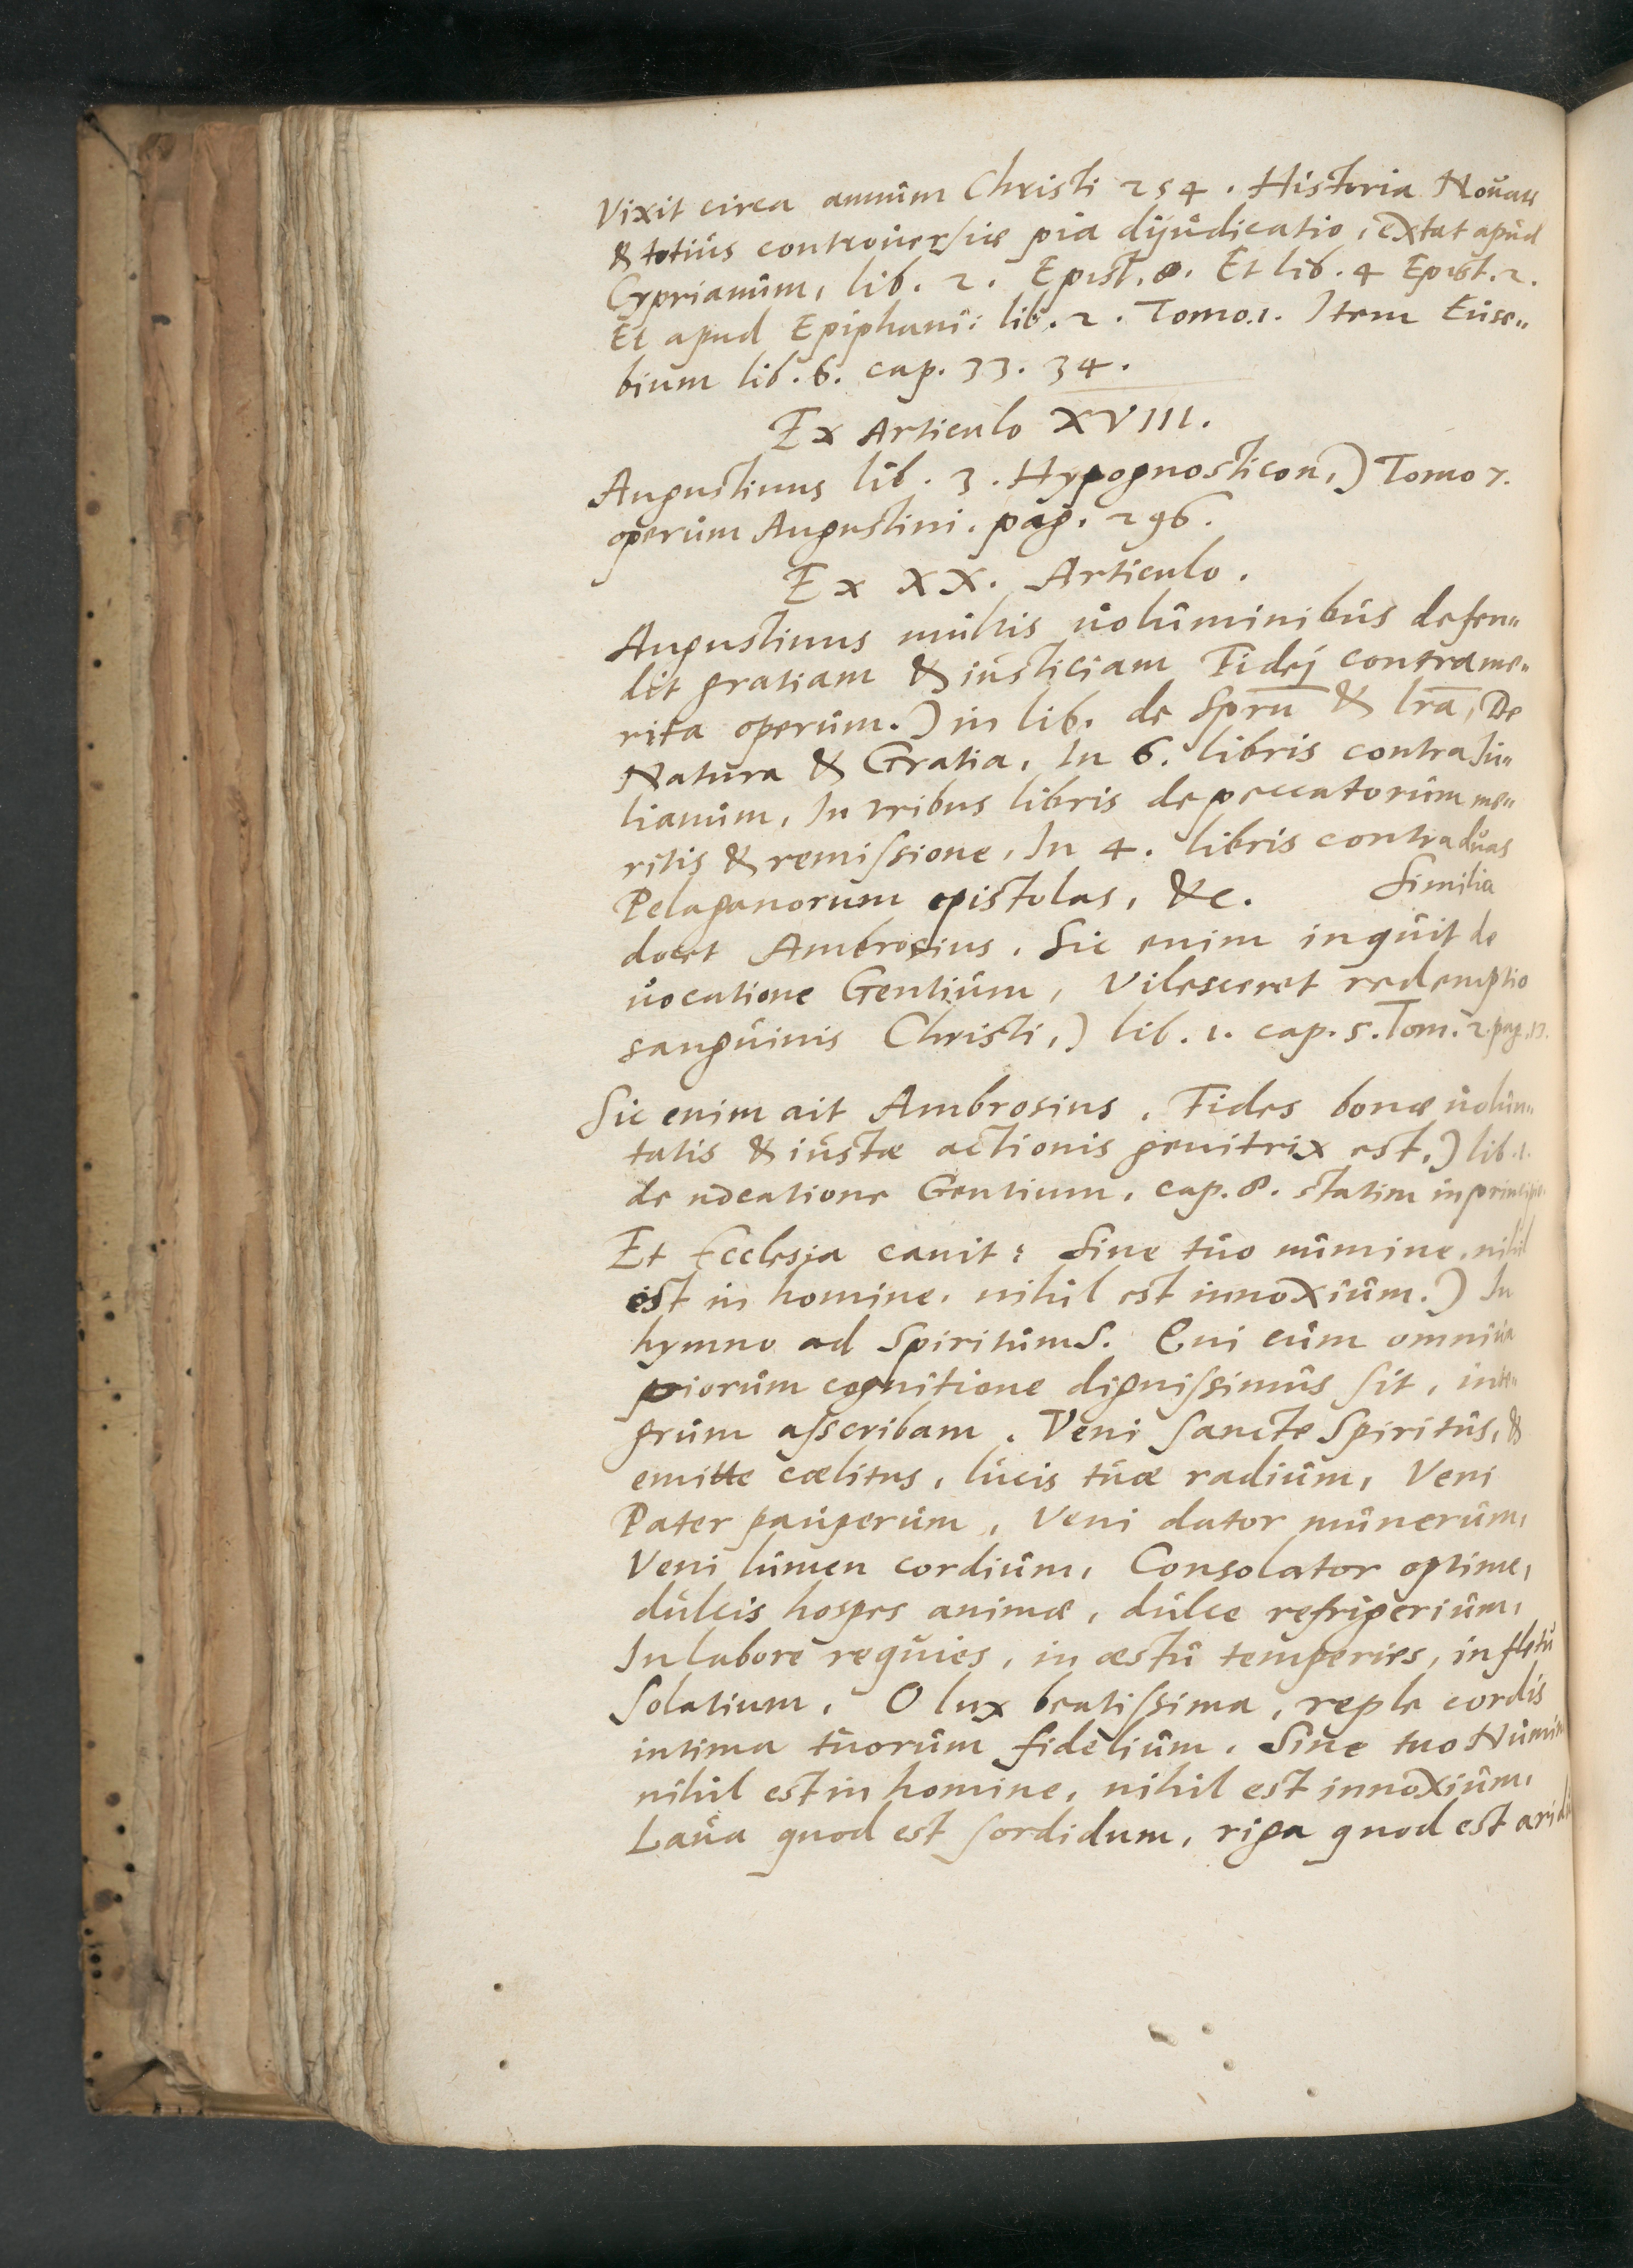 Vixit circa annum Christi 254. Historia
& totius controuersiæ pia dijudicatio, extat apud
Cyprianum, lib. 2. Epist. 8. Et lib. 4 Epist. 2.
Et apud Epiphani: lib. 2. Tomo. 1. Item Euse„
bium lib. 6. cap. 33. 34.
Ex Articulo XVIII.
Augustinus lib. 3. Hypognosticon,) Tomo 7.
operum Augustini. pag. 296.
Ex XX. Articulo.
Augustinus multis uoluminibus defen„
dit gratiam & iusticiam Fidej contra me„
rita operum.) in lib. de Spru̅ & lra̅, De
Natura & Gratia, In 6. libris contra Ju„
lianum, In tribus libris de peccatorum me„
ritis & remissione, In 4. libris contra duas
Pelaganorum epistolas, &c. Similia
docet Ambrosius. Sic enim inquit de
uocatione Gentium, Vilesceret redemptio
sanguinis Christi,) lib. 1. cap. 5. Tom. 2. pag.
Sic enim ait Ambrosius. Fides bonæ uolun„
tatis & iustæ actionis genitrix est,) lib. 1.
de uocatione Gentium, cap. 8. statim in principio
Et Ecclesia canit: Sine tuo numine, nihil
est in homine, nihil est innoxium.) In
hymno ad Spiritum S. Qui cum omnium
piorum cognitione dignissimus sit, inte„
grum asscribam. Veni Sancte Spiritus, &
emitte cælitus, lucis tuæ radium, Veni
Pater pauperum, Veni dator munerum,
Veni lumen cordium, Consolator optime,
dulcis hospes animæ, dulce refrigerium,
In labore requies, in æstu temperies, in fletu
Solatium, O lux beatissima, reple cordis
intima tuorum fidelium. Sine tuo Numine
nihil est in homine, nihil est innoxium,
Laua quod est sordidum, riga quod est